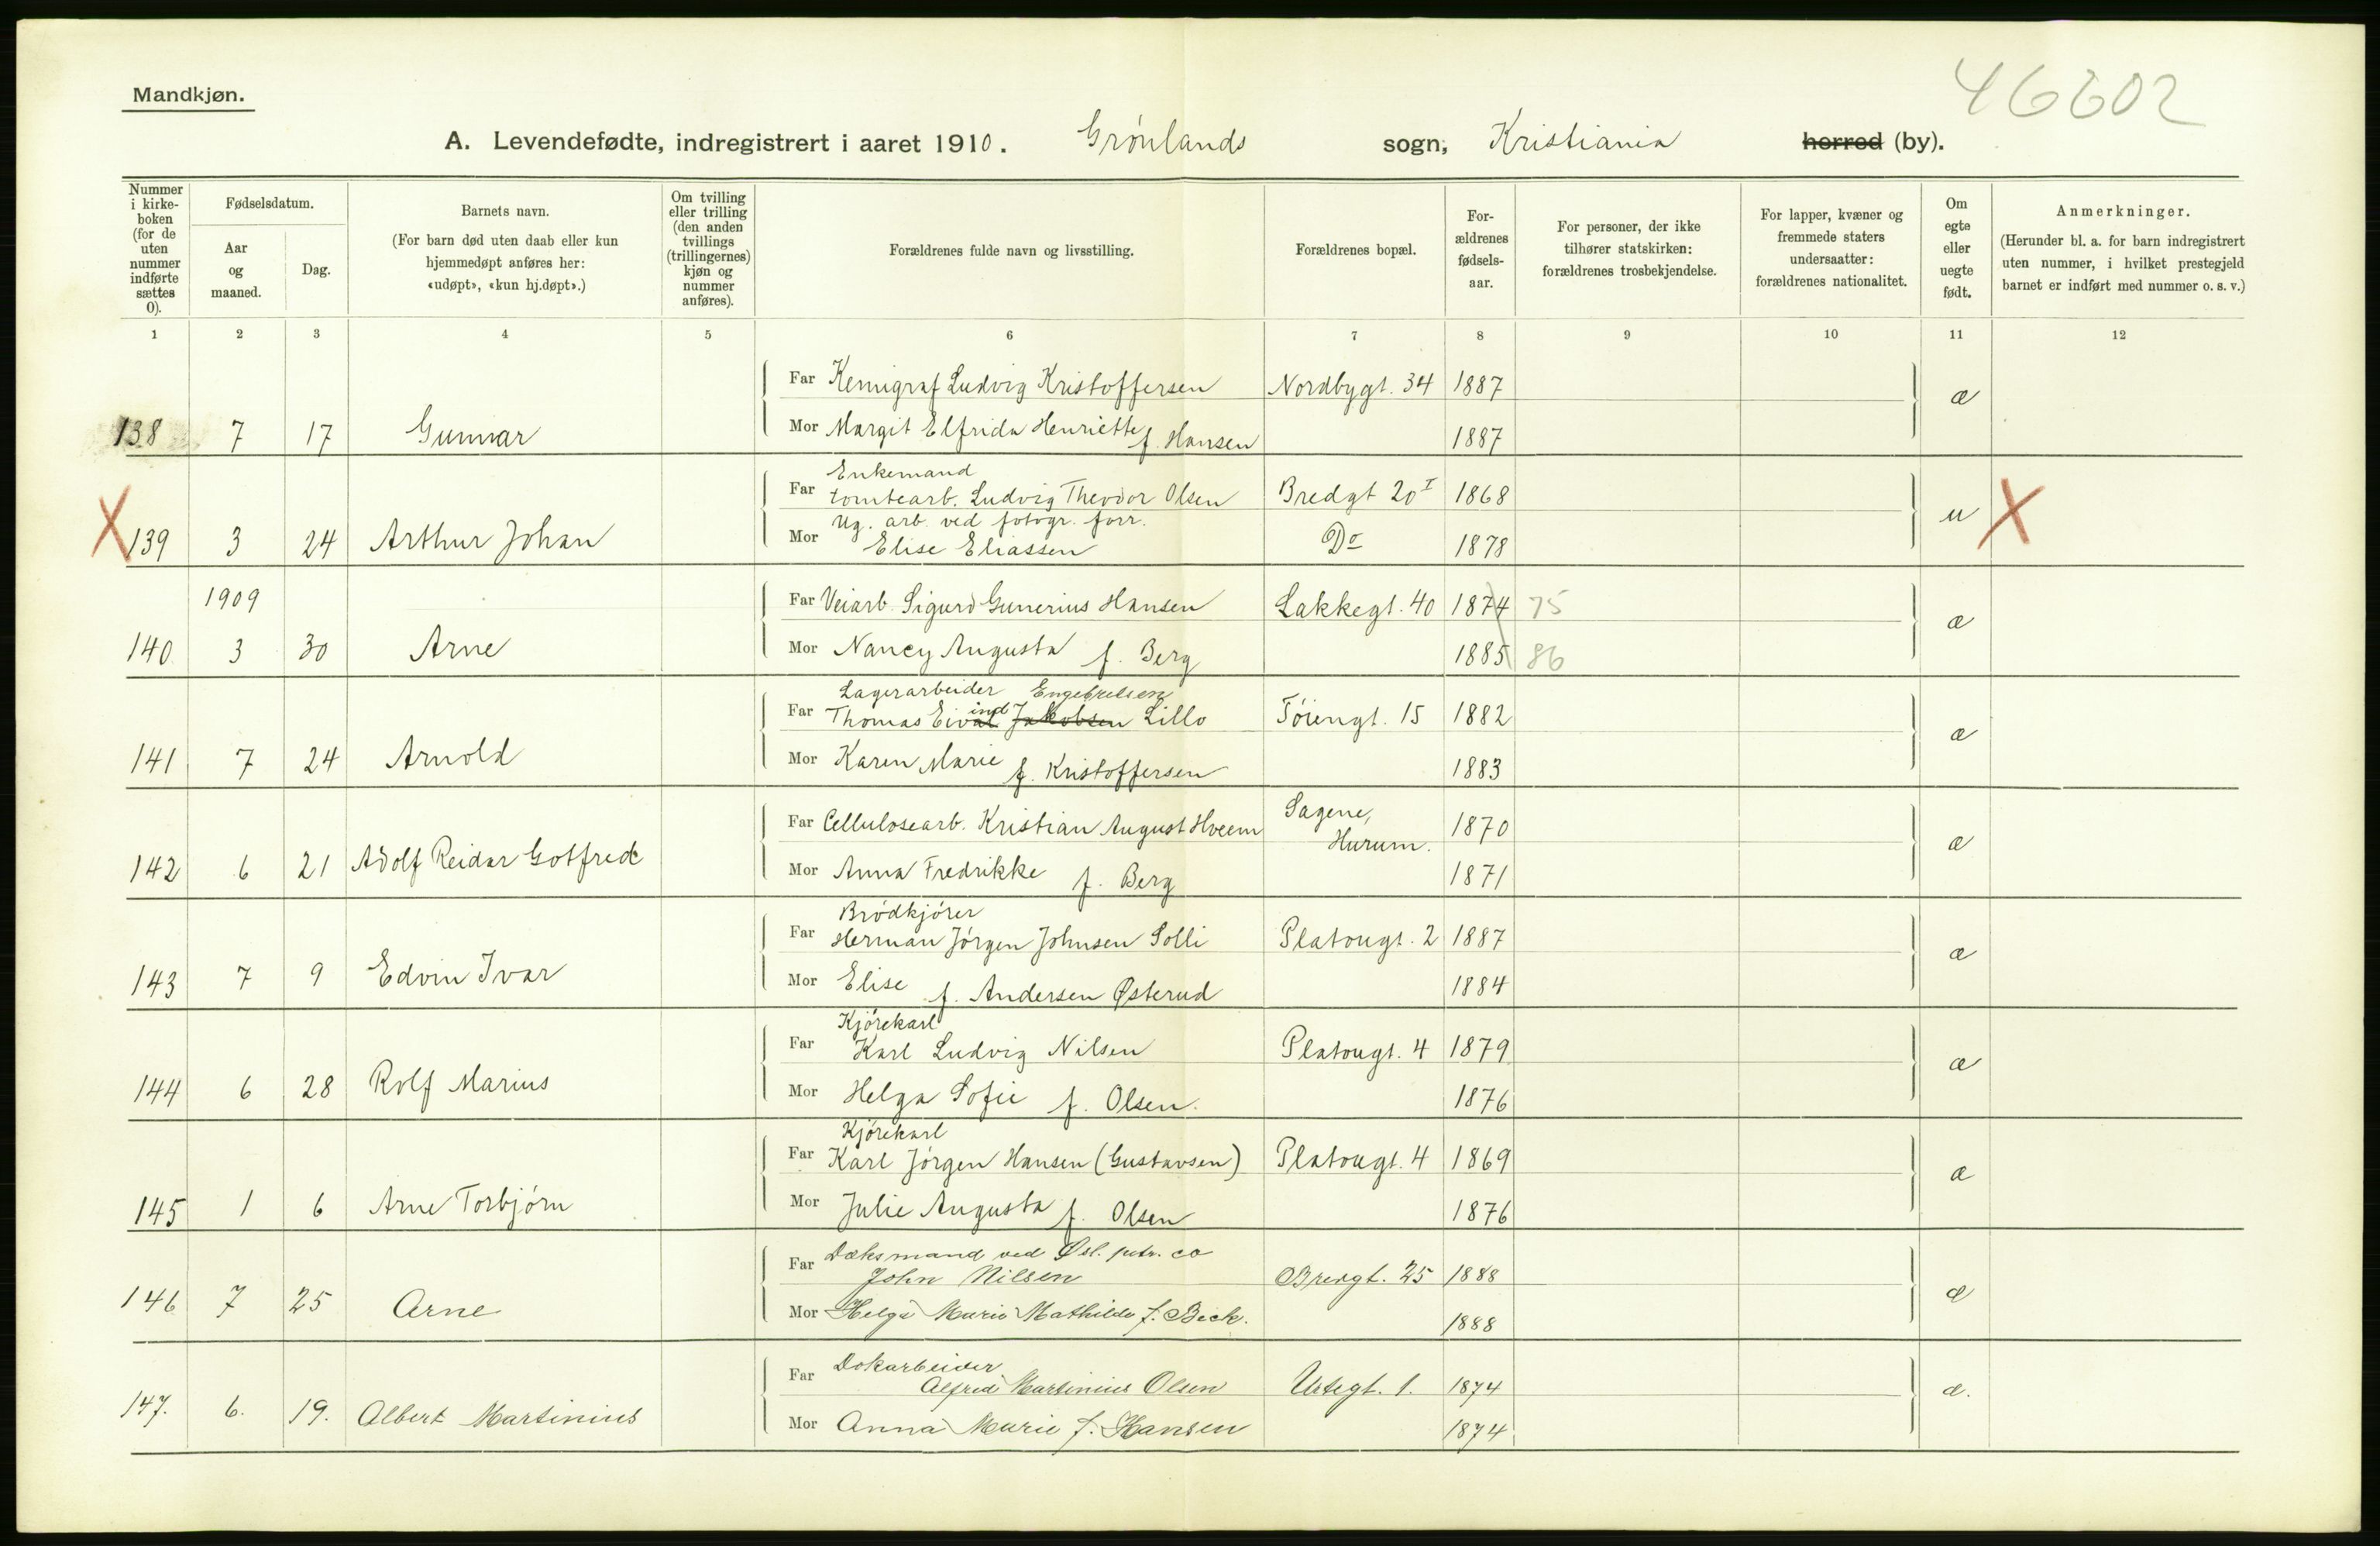 46602
Mandkjøn.
A. Levendefødte, indregistrert i aaret 1910. Grønlands sogn, Kristiania herred (by).
Nummer i kirke-boken (for de uten nummer indførte sættes 0).
Fødselsdatum.
Aar og maaned.
Dag.
Barnets navn.
(For barn død uten daab eller kun hjemmedøpt anføres her: «udøpt», «kun hj.døpt».)
Om tvilling eller trilling (den anden tvillings (trillingernes) kjøn og nummer anføres).
Forældrenes fulde navn og livsstilling.
Forældrenes bopæl.
For-ældrenes fødsels-aar.
For personer, der ikke tilhører statskirken: forældrenes trosbekjendelse.
For lapper, kvæner og fremmede staters undersaatter: forældrenes nationalitet.
Om egte eller uegte født.
Anmerkninger.
(Herunder bl. a. for barn indregistrert uten nummer, i hvilket prestegjeld barnet er indført med nummer o. s. v.)
1 2 3 4 5 6 7 8 9 10 11 12
Far Kemigraf Ludvig Kristoffersen Nordbygt. 34 1887 æ
138 7 17 Gunnar Mor Margit Elfrida Henriette f. Hansen 1887
Enkemand
Far tomtearb. Ludvig Theodor Olsen Bredgt 20 I 1868 u X
Ug. arb. ved fotogr. forr.
X 139 3 24 Arthur Johan Mor Elise Eliassen Do 1878
1909 Far Veiarb. Sigurd Gunerius Hansen Lakkegt. 40 1874 75 æ
140 3 30 Arne Mor Nancy Augusta f. Berg 1885 86
Lagerarbeider Engebretsen
Far Thomas Eival ind Jakobsen Lillo Töiengt. 15 1882 æ
141 7 24 Arnold Mor Karen Marie f. Kristoffersen 1883
Far Cellulosearb. Kristian August Hveem Sagene, Hurum. 1870 æ
142 6 21 Adolf Reidar Gotfred Mor Anna Fredrikke f. Berg 1871
Brödkjörer
Far Herman Jörgen Johnsen Solli Platougt. 2 1887 æ
143 7 9 Edvin Ivar Mor Elise f. Andersen Østerud 1884
Kjörekarl
Far Karl Ludvig Nilsen Platougt. 4 1879 æ
144 6 28 Rolf Marius Mor Helga Sofie f. Olsen. 1876
Kjörekarl
Far Karl Jörgen Hansen (Gustavsen) Platougt. 4 1869 æ
145 1 6 Arne Torbjörn Mor Julie Augusta f. Olsen 1876
Dæksmand ved Øsl. petr. co
Far John Nilsen Breigt. 25 1888 æ
146 7 25 Arne Mor Helga Marie Mathilde f. Beck. 1888
Dokarbeider
Far Alfred Martinius Olsen Urtegt. 1. 1874 æ.
147. 6. 19. Albert Martinius Mor Anna Marie f. Hansen 1874